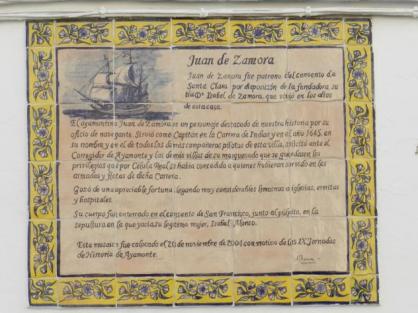 Juan de Zamora
Juan de Zamora fue patrono del convento de
Santa Clara por disposición de la fundadora su
tía Dª Isabel de Zamora, que vivió en los altos
de esta casa.
El ayamontino Juan de Zamora es un personaje destacado de nuestra historia por su
oficio de navegante. Sirvió como Capitán en la Carrera de Indias y en el año 1645, en
su nombre y en el de todos los demás compañeros pilotos de esta villa, solicitó ante el
Corregidor de Ayamonte y las demás villas de su marquesado que se guardasen los
privilegios que por Cédula Real se había concedido a quienes hubieran servido en las
armadas y flotas de dicha Carrera.
Gozó de una apreciable fortuna, legando muy considerables limosnas a iglesias, ermitas
y hospitales.
Su cuerpo fue enterrado en el convento de San Francisco, junto al púlpito, en la
sepultura en la que yacía su legítima mujer, Isabel Alonso.
Este mosaico fue colocado el 20 de noviembre de 2004 con motivo de las IX Jornadas
de Historia de Ayamonte.